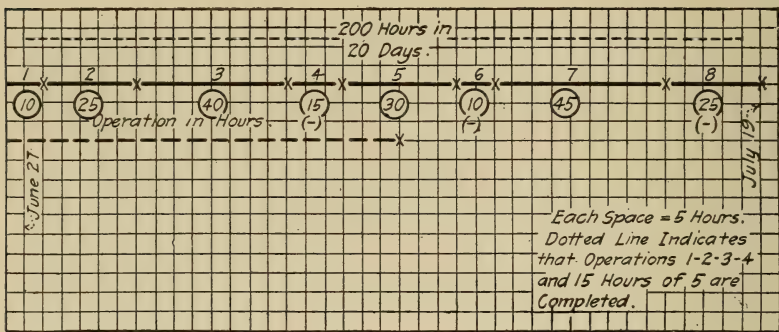 200 Hours in
20 Days.
1 2 3 4 5 6 7 8
10 25 40 15 30 10 45 25
(-) (-) (-)
Operation in Hours.
June 27
July 19
Each Space = 5 Hours.
Dotted Line Indicates
that Operations 1-2-3-4
and 15 Hours of 5 are
Completed.